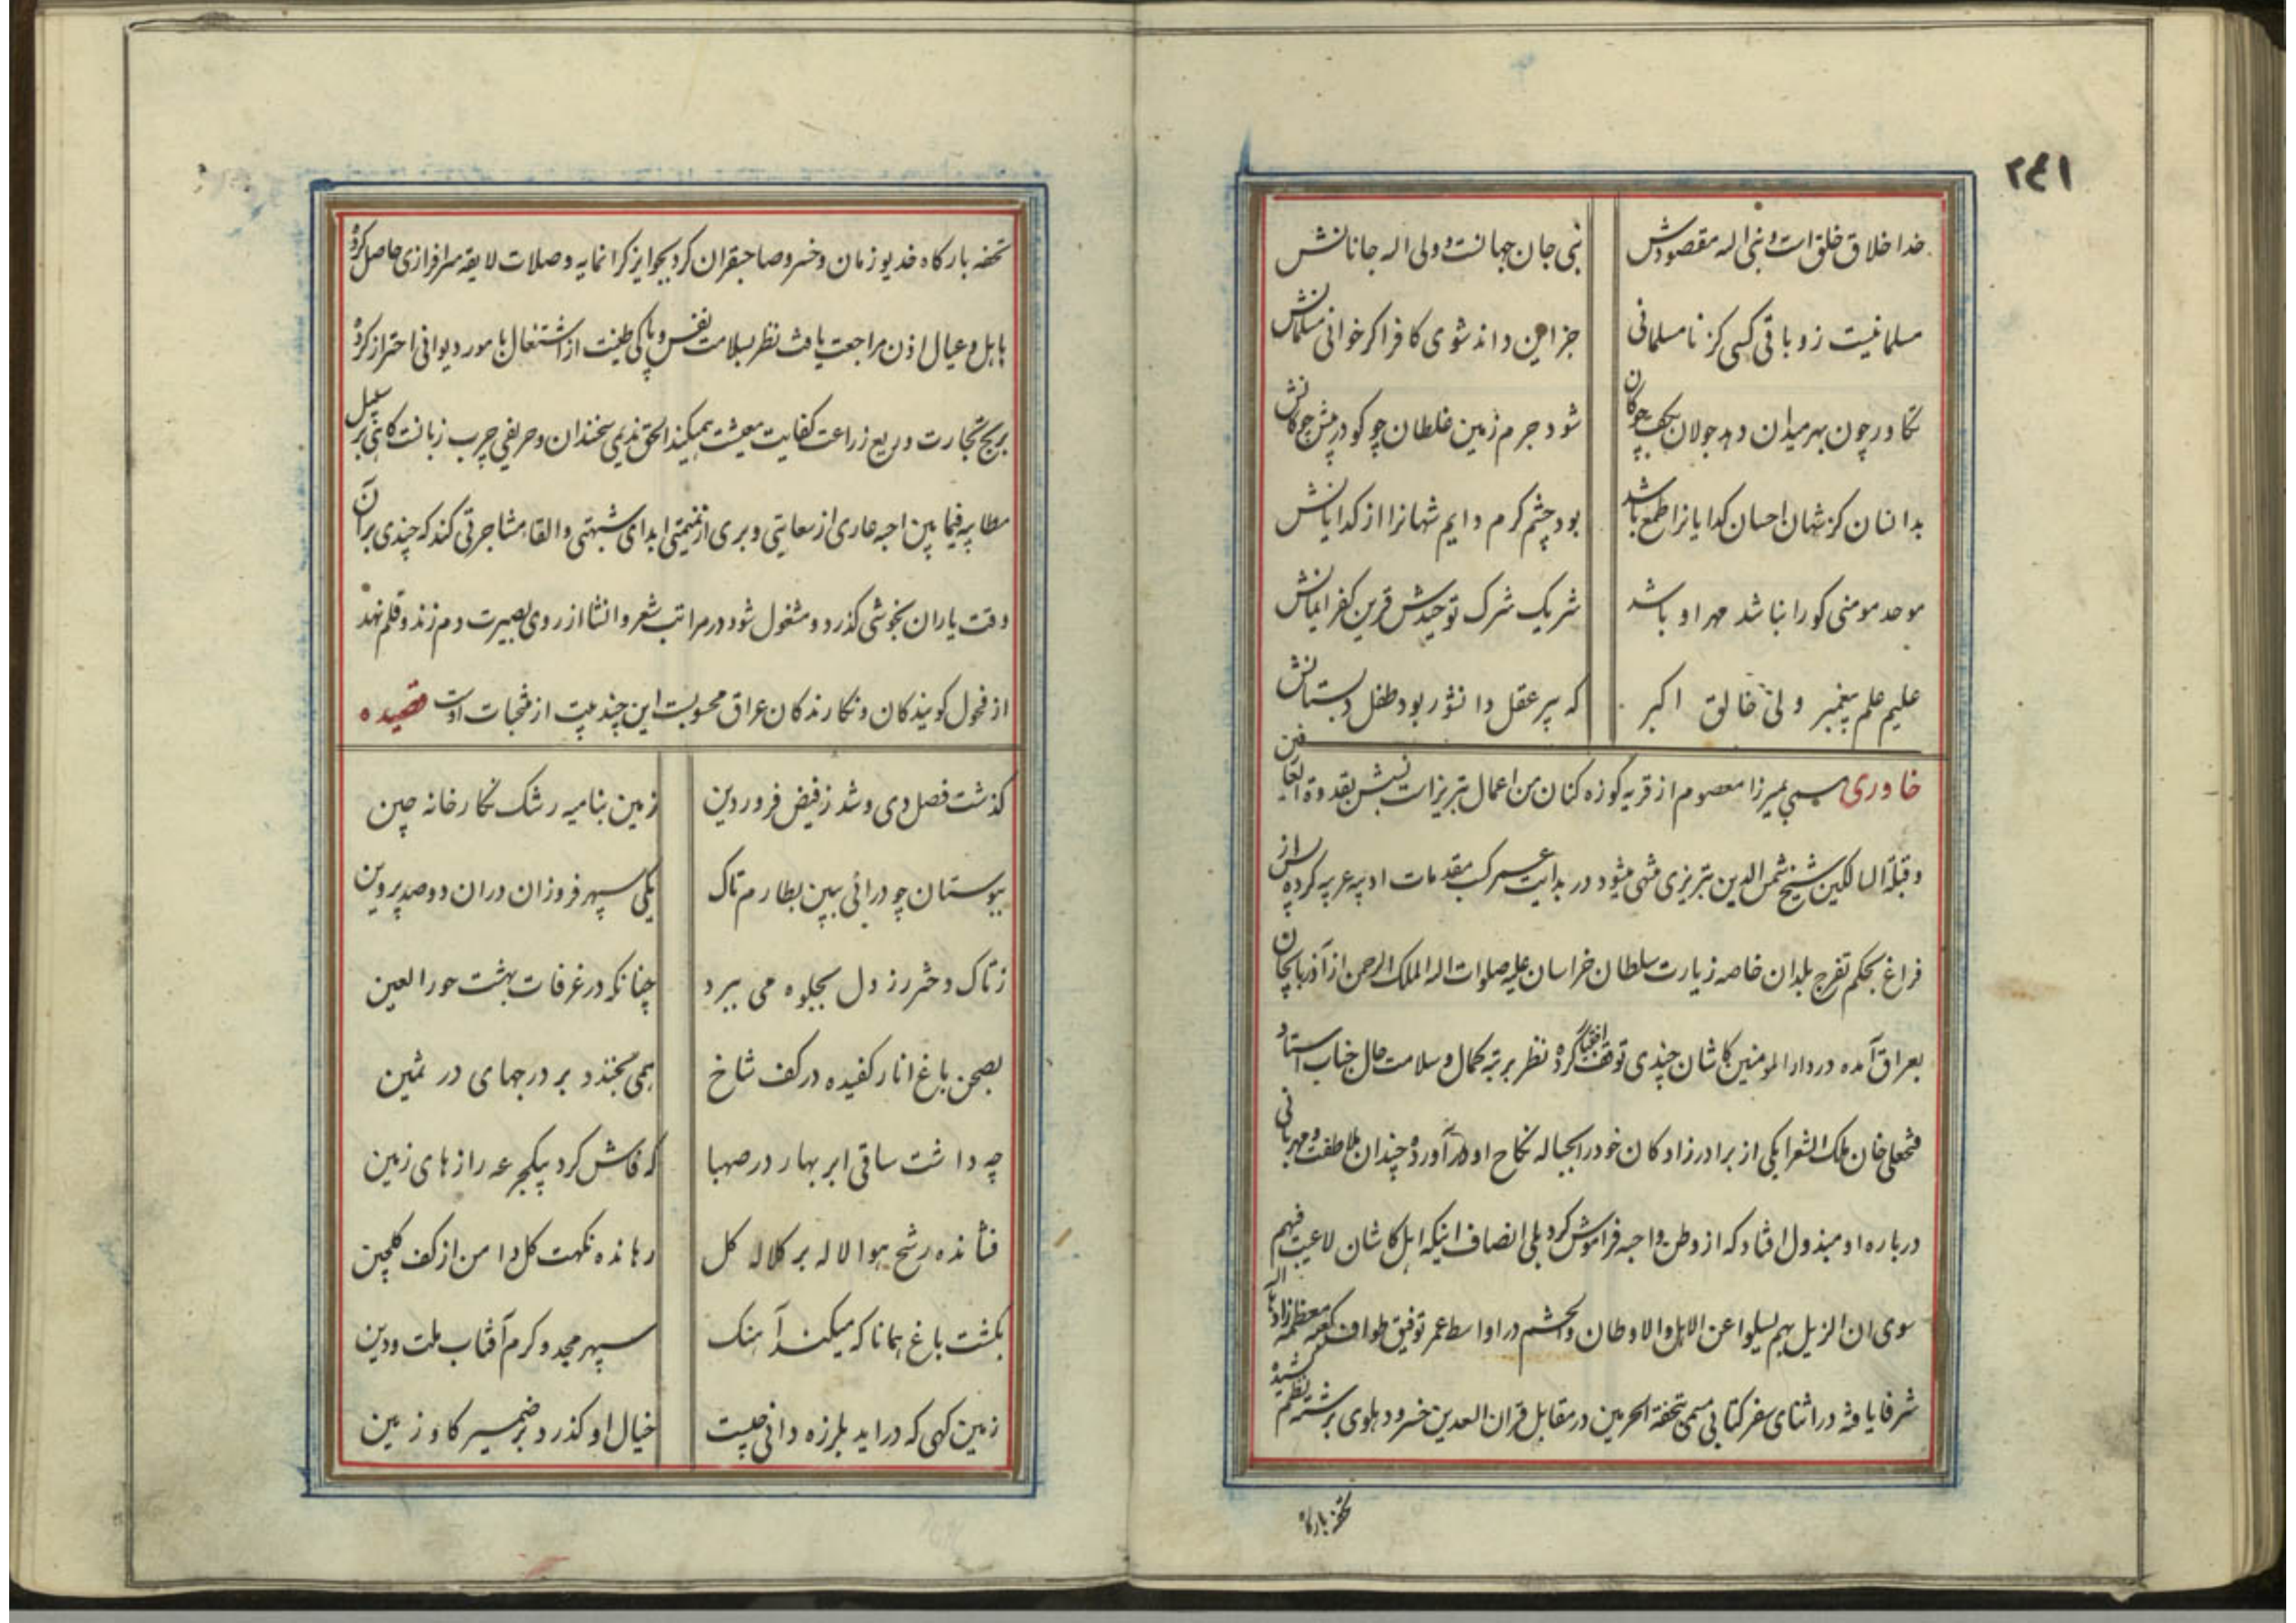 ۲۴۱
خدا خلاق خلق است و نبی اله مقصودش
نبی جان جهانست و ولی اله جانانش
مسلمانیست زو باقی کسی کز نامسلمانی
جز این داند شوی کافر اکر خوانی مسلمانش
تکاور چون بهر میدان دهد جولان بکف چوکان
شود جرم زمین غلطان چو کو در پیش چوکانش
بدانسان کز شهان احسان کدایانرا طمع باشد
بود چشم کرم دایم شهانرا از کدایانش
موحد مومنی کورا نباشد مهر او باشد
شریک شرک توحیدش قرین کفر ایمانش
علیم علم پیغمبر ولی خالق اکبر
که پیر عقل دانشور بود طفل دبستانش
خاوری میرزا معصوم از قریه کوزه کنان من اعمال تبریز است نسبش بقدوة العارفین
و قبلة السالکین شیخ شمس الدین تبریزی منتهی میشود در بدایت عمر کسب مقدمات ادبیه عربیه کرده پس از
فراغ بحکم تفرج بلدان خاصه زیارت سلطان خراسان علیه صلوات اله الملک الرحمن از آذربایجان
بعراق آمده در دار المومنین کاشان چندی توقف اختیار کرده نظر برتبه کمال و سلامت حال جناب استاد
فتحعلی خان ملک الشعرا یکی از برادرزادکان خود را بحباله نکاح او در آورده چندان ملاطفت و مهربانی
درباره او مبذول افتاد که از وطن و احبه فراموش کرد بلی انصاف اینکه اهل کاشان لاعیب فیهم
سوی ان النزیل بهم یسلوا عن الاهل والاوطان والحشم در اواسط عمر توفیق طواف کعبه معظمه زادها اله
شرفا یافته در اثنای سفر کتابی مسمی بتحفة الحرمین در مقابل قران السعدین خسرو دهلوی برشته نظم کشیده
تحفه بارکاه
تحفه بارکاه خدیو زمان و خسرو صاحبقران کرد بجوایز کرانمایه و صلات لایقه سرافرازی حاصل کرده
باهل و عیال اذن مراجعت یافت نظر بسلامت نفس و پاکی طینت از اشتغال بامور دیوانی احتراز کرده
بربح تجارت و ریع زراعت کفایت معیشت میکند الحق ندیمی سخندان و حریفی چرب زبانست کاهی بر سبیل
مطایبه فیما بین احبه عاری از سعایتی و بری از نمیمتی ابدای شبهتی و القاء مشاجرتی کند که چندی بر آن
وقت یاران بخوشی کذرد و مشغول شود در مراتب شعر و انشا از روی بصیرت دم زند و قلم نهد
از فحول کویندکان و نکارندکان عراق محسوبست این چند بیت از منتخبات اوست قصیده
کذشت فصل دی و شد ز فیض فروردین
زمین بنامیه رشک نکارخانه چین
ببوستان چو درائی ببین بطارم تاک
یکی سپهر فروزان دران دو صد پروین
ز تاک دختر رز دل بجلوه می ببرد
چنانکه در غرفات بهشت حور العین
بصحن باغ انار کفیده در کف شاخ
همی بخندد بر درجهای در ثمین
چه داشت ساقی ابر بهار در صهبا
که فاش کرد بیکجرعه رازهای زمین
فشانده رشح هوا لاله بر کلاله کل
رهانده نکهت کل دامن از کف کلچین
بکشت باغ همانا که میکند آهنک
سپهر مجد و کرم آفتاب ملت و دین
زمین کهی که دراید بلرزه دانی چیست
خیال او کذرد بر ضمیر کاو زمین